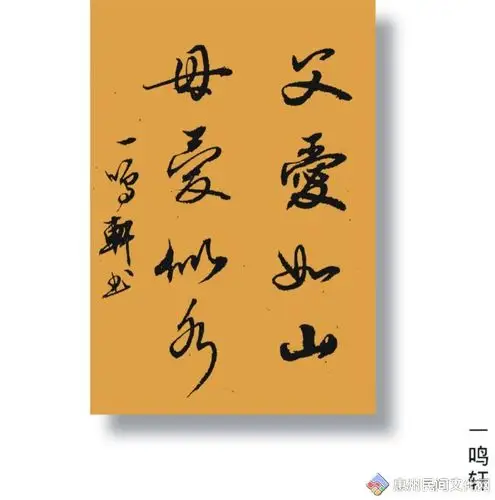 父愛如山
母爱似水
一鸣軒书
一鸣轩
州民间文